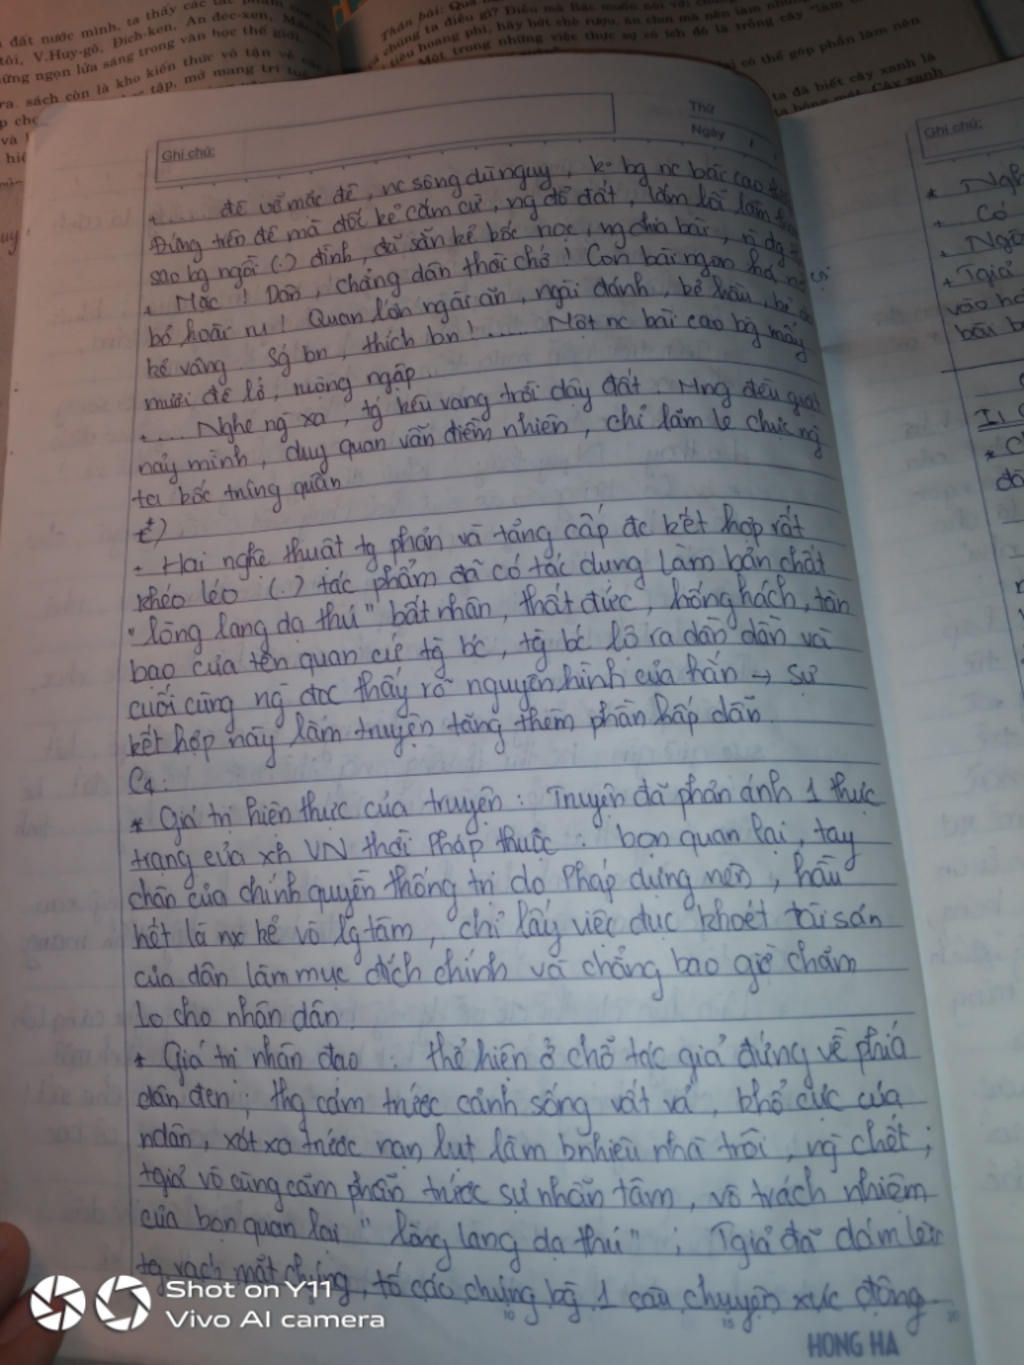 đất nước mình, ta thấy các tác phẩm
tôi, V.Huy-gô, Đích-ken, An đéc-xen,
ững ngọn lửa sáng trong văn học thế giới.
ra, sách còn là kho kiến thức vô tận về
tập, mở mang trí tuệ
Thân bài:
chúng ta điều gì? Điều mà Bác muốn nói với
tiêu hoang phí, hãy bớt chè rượu, ăn chơi mà nên làm những
Một trong những việc thực sự có ích đó là trồng cây "làm
có thể góp phần làm nên
ta đã biết cây xanh là
Thứ
Ngày
Ghi chú:
+ .... đê vỡ mặc đê, nc sông dù nguy, k° bg nc bài cao
Đứng trên đê mà đốt kẻ cắm cừ, ng đổ đất, lấm lối lấm
sao bg ngồi (.) đình, đã sẵn kẻ bốc nọc, ng chia bài,
+ Mặc! Dân, chẳng dân thời chớ! Con bài ngon há
bỏ hoài ru! Quan lớn ngài ăn, ngài đánh, bẻ hầu,
kẻ vâng. Sg bn, thích bn!.... Một nc bài cao bg mấy
mươi đê lở, ruộng ngập
+ .... Nghe ng xa, tg kêu vang trời dậy đất. Mng đều
nảy mình, duy quan vẫn điềm nhiên, chỉ lăm le chực ng
ta bốc trúng quân
đ)
- Hai nghệ thuật tg phản và tăng cấp đc kết hợp rất
khéo léo (.) tác phẩm đã có tác dụng làm bản chất
"lòng lang dạ thú" bất nhân, thất đức, hống hách, tàn
bạo của tên quan cứ tg bc, tg bc lộ ra dần dần và
cuối cùng ng đọc thấy rõ nguyên hình của hắn → sự
kết hợp này làm truyện tăng thêm phần hấp dẫn.
C4:
* Giá trị hiện thực của truyện: Truyện đã phản ánh 1 thực
trạng của xh VN thời Pháp thuộc: bọn quan lại, tay
chân của chính quyền thống trị do Pháp dựng nên, hầu
hết là nx kẻ vô lg tâm, chỉ lấy việc đục khoét tài sản
của dân làm mục đích chính và chẳng bao giờ chăm
lo cho nhân dân.
* Giá trị nhân đạo: thể hiện ở chỗ tác giả đứng về phía
dân đen; thg cảm trước cảnh sống vất vả, khổ cực của
ndân, xót xa trước nạn lụt làm bnhiêu nhà trôi, ng chết;
tgiả vô cùng căm phẫn trước sự nhẫn tâm, vô trách nhiệm
của bọn quan lại "lòng lang dạ thú"; Tgiả đã dám lên
tg vạch mặt chúng, tố cáo chúng bg 1 câu chuyện xúc động
HONG HA
Ghi chú:
+ Có
+ Tgiả
vào
Shot on Y11
Vivo AI camera